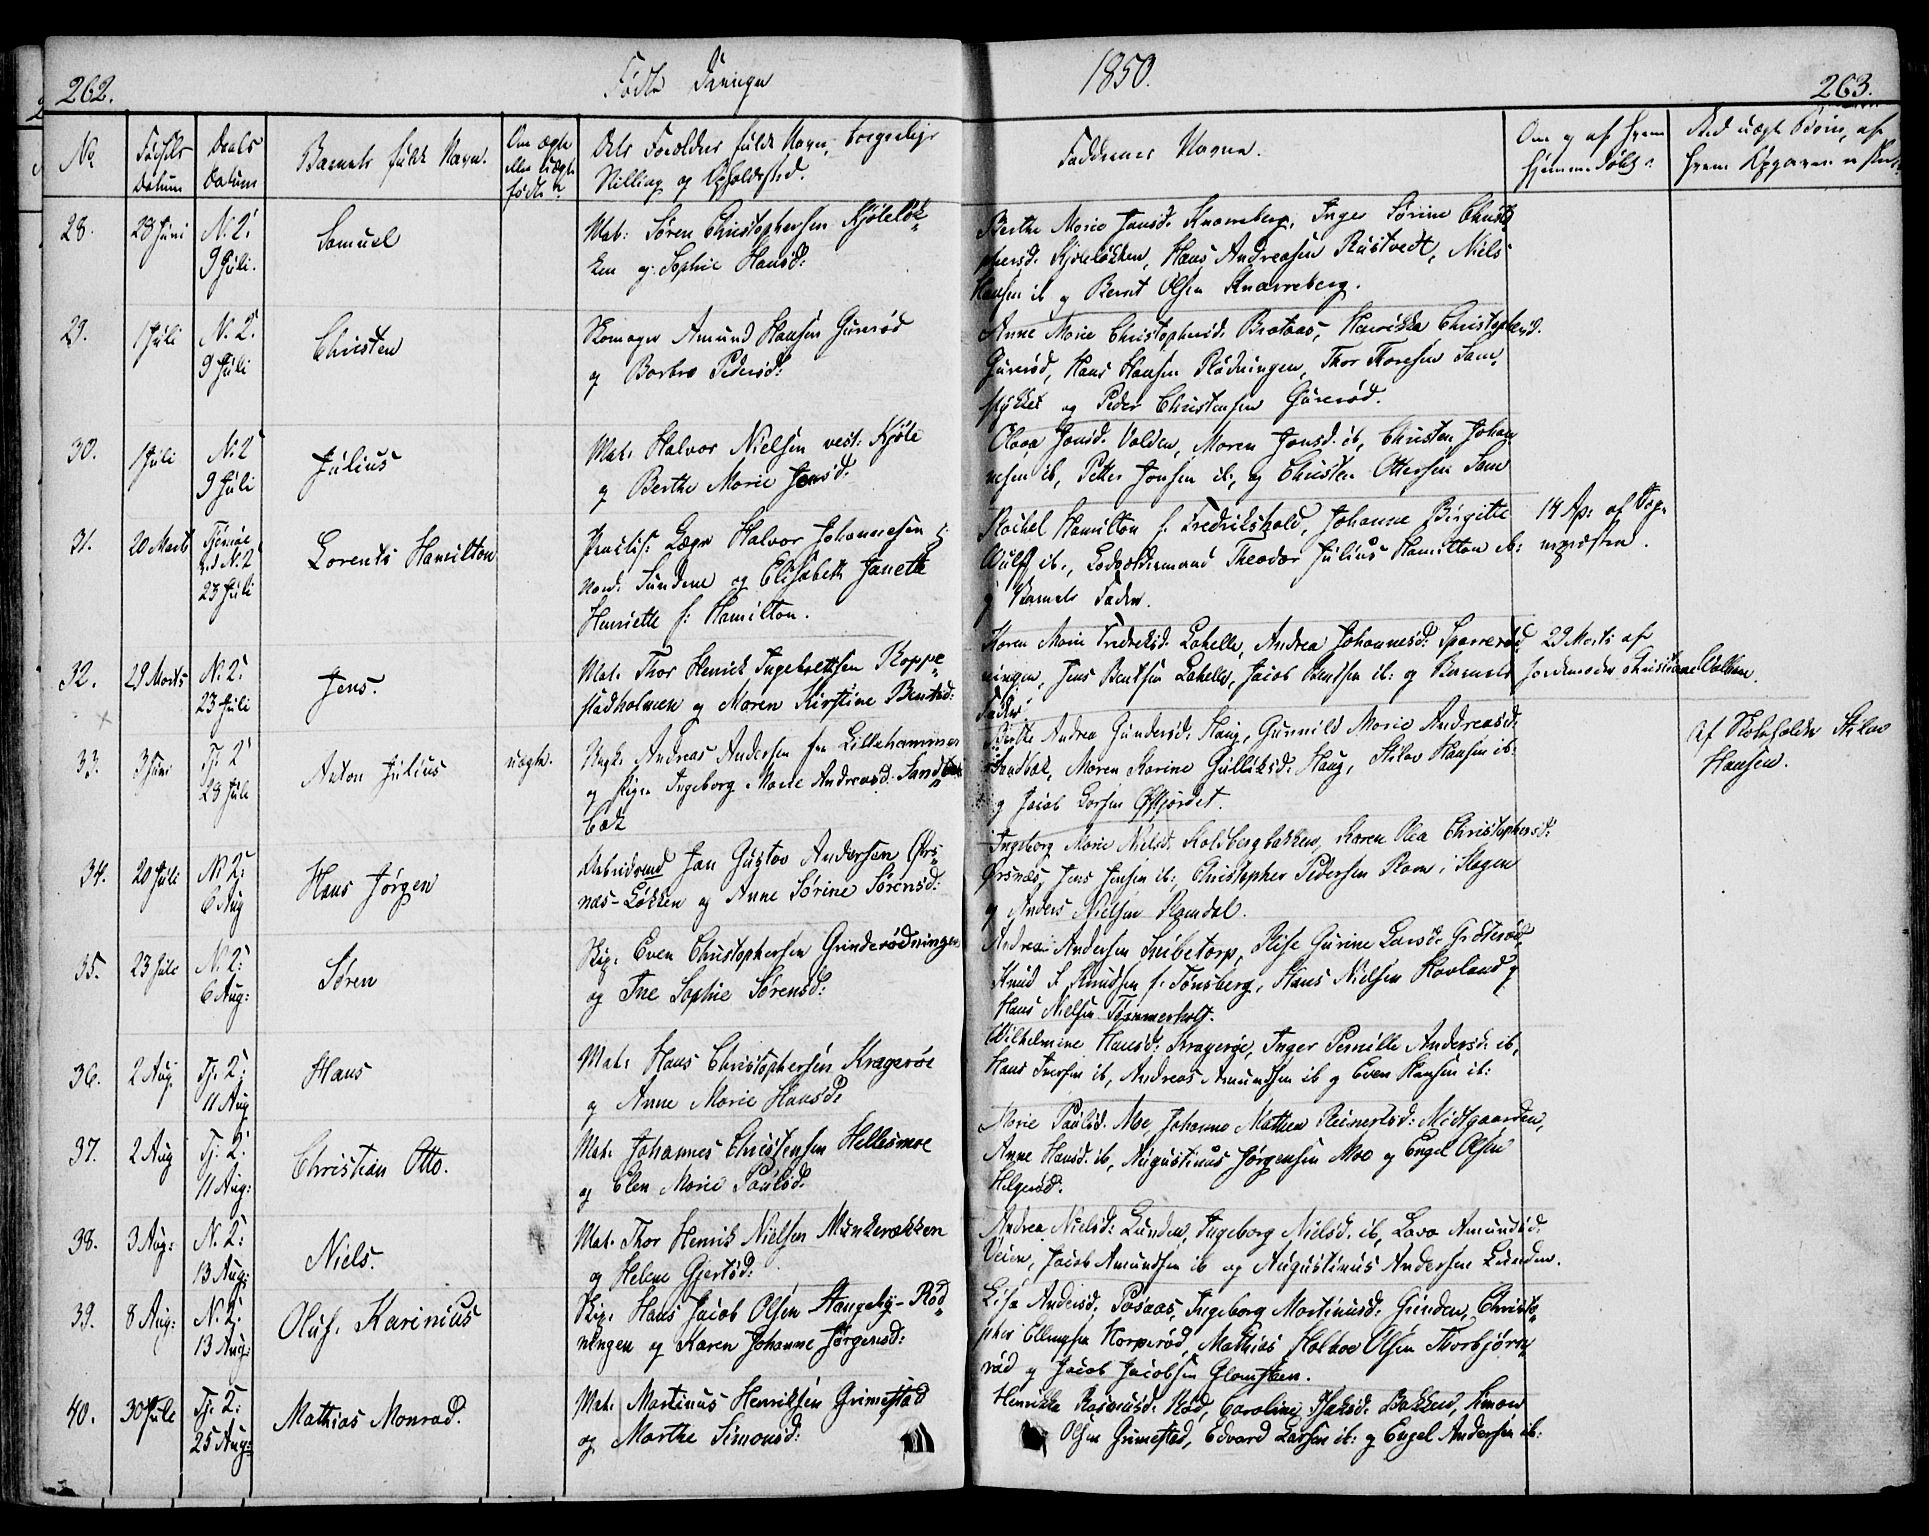 262.
Fødte Drenge
1850.
263.
No
Fødsels Datum
Daabs Datum
Barnets fulde Navn.
Om ægte eller uægte født
Dets Forældres fulde Navn, borgerlige
Stilling og Opholdssted.
Faddernes Navne.
Om og af hvem
hjemmedøbt
28.
28 Juni
N. 2:
9 Juli.
Samuel
Mat: Søren Christophersen Kjøleløk
ken og Sophie Hansd:
Berthe Marie Jansd. Knarreberg, Inger Sørine Christo
phersd. Kjøleløkken, Hans Andreasen Rustvedt, Niels
Hansen ib og Bernt Olsen Knarreberg.
29.
1 Juli
N. 2:
9 Juli
Christen
Skomager Amund Hansen Gurerød
og Barbro Pedersd:
Anne Marie Christophersd. Brataas, Henrikke Christophersd.
Gurerød, Hans Hansen Rødningen, Thor Thoresen Sam
stykket og Peder Christensen Gurerød.
30.
1 Juli
N: 2
9 Juli
Julius
Mat. Halvor Nielsen vest: Kjøle
og Berthe Marie Jonsd:
Olava Jonsd. Volden, Maren Jonsd. ib, Christen Johan
nesen ib, Petter Jonsen ib, og Christen Ottersen Sam
31.
20 Marts
N: 2
23 Juli
Lorents Hamilton
Practis: Læge Halvor Johannesen
nord: Sundene og Elisabeth Janette
Henriette f: Hamilton.
Rachel Hamilton f. Fredrikshald, Johanne Birgitte
Wulff ib., Lodsoldermand Theodor Julius Hamilton ib:
og Barnets Fader.
14 Ap: af Sog
nepræsten.
32.
29 Marts
N. 2:
23 Juli
Jens.
Mat. Thor Henrik Ingebretsen Roppe
stadholmen og Maren Kirstine Bentsd:
Karen Marie Fredriksd. Lahelle, Andrea Johannesd: Sparrerød
ningen, Jens Bentsen Lahelle, Jacob Bentsen ib: og Barnets
Fader.
29 Marts af
Jordemoder Christiane
33.
3 Juni
Tj. 2
28 Juli
Anton Julius
uægte.
Ungk. Andreas Andersen fra Lillehammer
og Pige Ingeborg Marie Andreasd. Sand
bæk
Berthe Andrea Gundersd. Haug, Gunnild Marie Andreasd:
Sandbæk, Maren Karine Gulliksd. Haug, Hilav Hansen ib:
og Jacob Larsen
Af Skoleholder Hilav
Hansen.
34.
20 Juli
N. 2:
6 Aug
Hans Jørgen
Arbeidsmd Jan Gustav Andersen Ørs
næs-Løkken og Anne Sørine Sørensd:
Ingeborg Marie Nielsd. Holsbergbakken, Karen Olea Christophersd:
Ørsnæs, Jens Jensen ib:, Christopher Pedersen Ravn i Slagen
og Anders Nielsen Ramdal.
35.
23 Juli
N. 2:
6 Aug:
Søren
Skip. Even Christophersen Grinderødningen
og Ine Sophie Sørensd:
Andrea Andersen Smibetorp, Elise Gurine Larsd. Grøterød,
Knud F. Knudsen f. Tønsberg, Hans Nielsen Hovland og
Hans Nielsen Tømmerholt.
36.
2 Aug.
Tj. 2:
11 Aug
Hans
Mat. Hans Christophersen Kragerøe
og Anne Marie Hansd:
Wilhelmine Hansd: Kragerøe, Inger Pernille Andersd: ib,
Hans Iversen ib, Andreas Amundsen ib og Even Hansen ib:
37.
2 Aug
Tj. 2:
11 Aug:
Christian Otto.
Mat. Johannes Christensen Hellesmoe
og Elen Marie Paulsd.
Marie Paulsd. Moe, Johanne Mathea Reinertsd: Midtgaarden,
Anne Hansd. ib, Augustinus Jørgensen Moe og Engel Olsen
Helgerød.
38.
3 Aug:
N. 2:
13 Aug:
Niels.
Mat. Thor Henrik Nielsen Munkerækken
og Helene Gjertsd:
Andrea Nielsd: Lunden, Ingeborg Nielsd. ib, Lava Amundsd:
Veien, Jacob Amundsen ib og Augustinus Andersen Lunden.
39.
8 Aug:
N. 2:
13 Aug:
Oluf. Karinius
Skip. Hans Jacob Olsen Stangeby-Rød
ningen og Karen Johanne Jørgensd:
Lisa Andersd. Pasaas, Ingeborg Martinusd: Grinden, Christo
pher Ellingsen Korperød, Mathias Holboe Olsen Thorbjørn
rød og Jacob Jacobsen Glomsteen.
40.
30 Juli
Tj. 2:
25 Aug:
Mathias Monrad.
Mat. Martinus Henriksen Grimestad
og Marthe Simonsd:
Henrikke Rasmusd: Rød, Caroline Isaksd: Bakken, Simon
Olsen Grimestad, Edvard Larsen ib: og Engel Andersen ib: